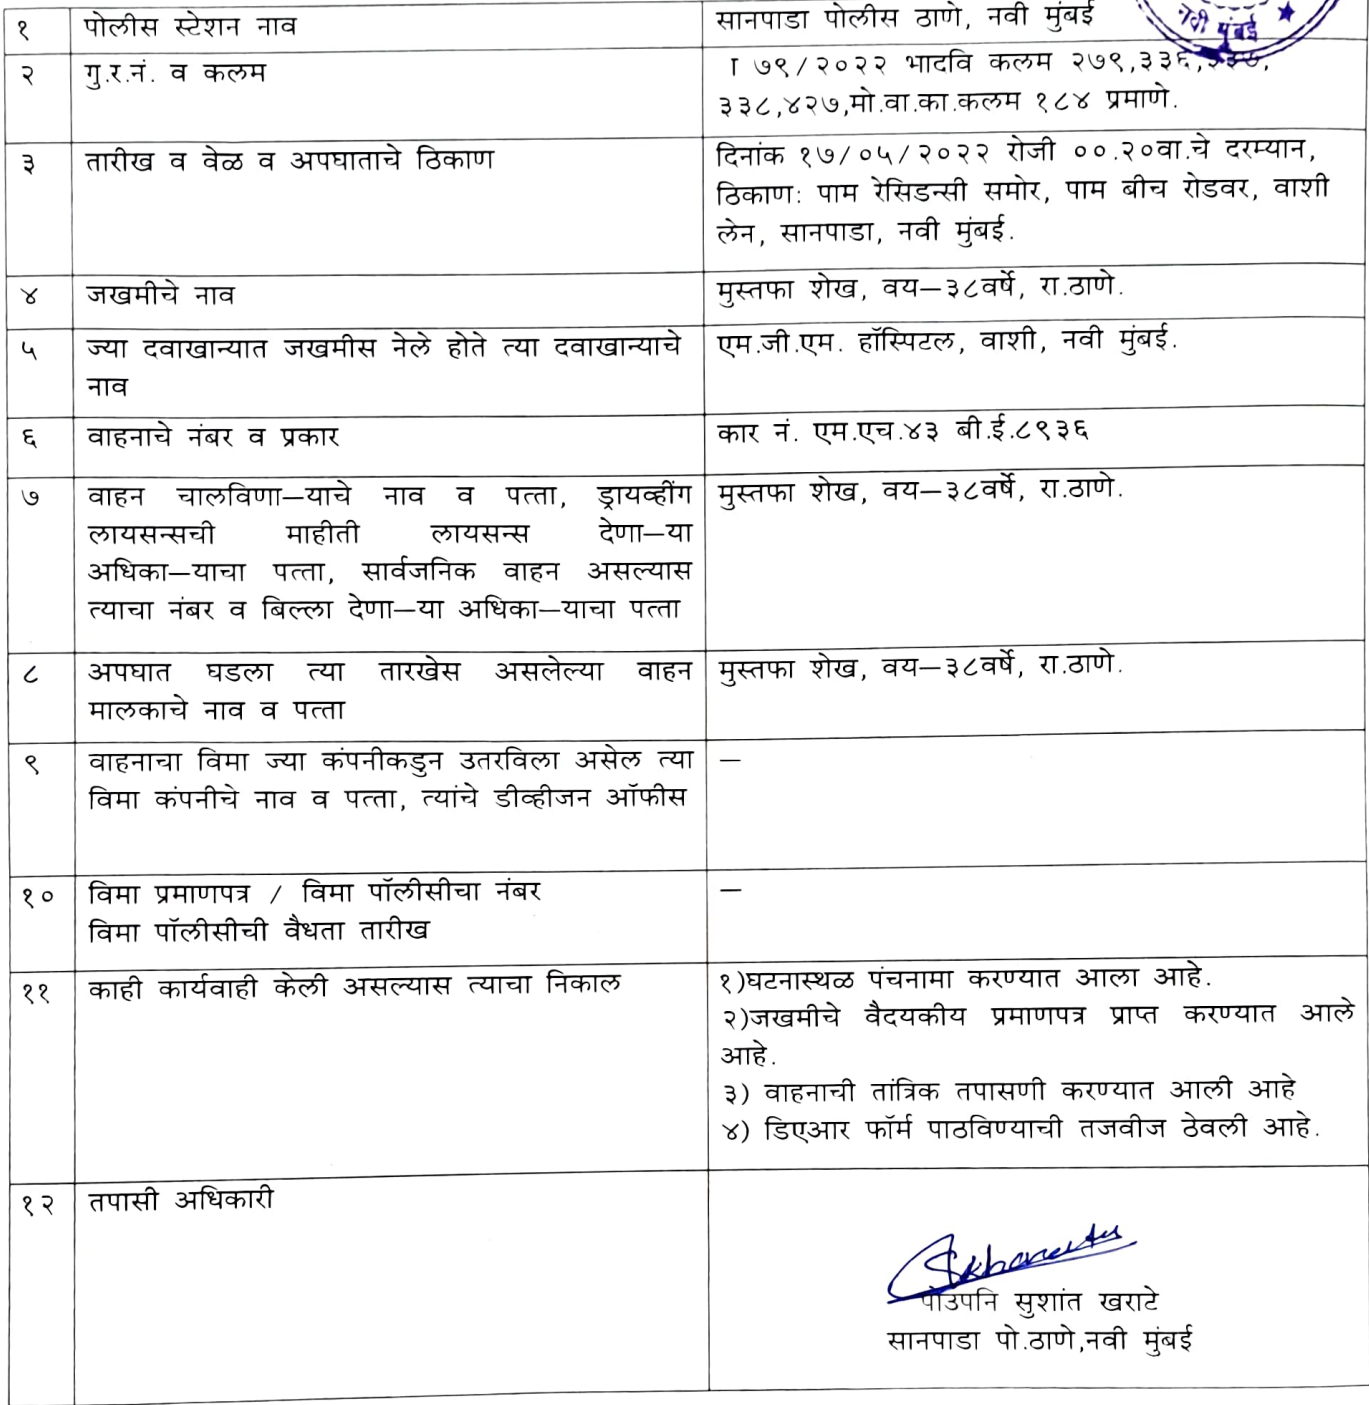 १ पोलीस स्टेशन नाव सानपाडा पोलीस ठाणे, नवी मुंबई
नवी मुंबई ★
२ गु.र.नं. व कलम I ७९/२०२२ भादवि कलम २७९,३३६,३३७,
३३८,४२७,मो.वा.का.कलम १८४ प्रमाणे.
३ तारीख व वेळ व अपघाताचे ठिकाण दिनांक १७/०५/२०२२ रोजी ००.२०वा.चे दरम्यान,
ठिकाण: पाम रेसिडन्सी समोर, पाम बीच रोडवर, वाशी
लेन, सानपाडा, नवी मुंबई.
४ जखमीचे नाव मुस्तफा शेख, वय—३८वर्षे, रा.ठाणे.
५ ज्या दवाखान्यात जखमीस नेले होते त्या दवाखान्याचे एम.जी.एम. हॉस्पिटल, वाशी, नवी मुंबई.
नाव
६ वाहनाचे नंबर व प्रकार कार नं. एम.एच.४३ बी.ई.८९३६
७ वाहन चालविणा—याचे नाव व पत्ता, ड्रायव्हींग मुस्तफा शेख, वय—३८वर्षे, रा.ठाणे.
लायसन्सची माहीती लायसन्स देणा—या
अधिका—याचा पत्ता, सार्वजनिक वाहन असल्यास
त्याचा नंबर व बिल्ला देणा—या अधिका—याचा पत्ता
८ अपघात घडला त्या तारखेस असलेल्या वाहन मुस्तफा शेख, वय—३८वर्षे, रा.ठाणे.
मालकाचे नाव व पत्ता
९ वाहनाचा विमा ज्या कंपनीकडुन उतरविला असेल त्या —
विमा कंपनीचे नाव व पत्ता, त्यांचे डीव्हीजन ऑफीस
१० विमा प्रमाणपत्र / विमा पॉलीसीचा नंबर —
विमा पॉलीसीची वैधता तारीख
११ काही कार्यवाही केली असल्यास त्याचा निकाल १)घटनास्थळ पंचनामा करण्यात आला आहे.
२)जखमीचे वैदयकीय प्रमाणपत्र प्राप्त करण्यात आले
आहे.
३) वाहनाची तांत्रिक तपासणी करण्यात आली आहे
४) डिएआर फॉर्म पाठविण्याची तजवीज ठेवली आहे.
१२ तपासी अधिकारी
पोउपनि सुशांत खराटे
सानपाडा पो.ठाणे,नवी मुंबई